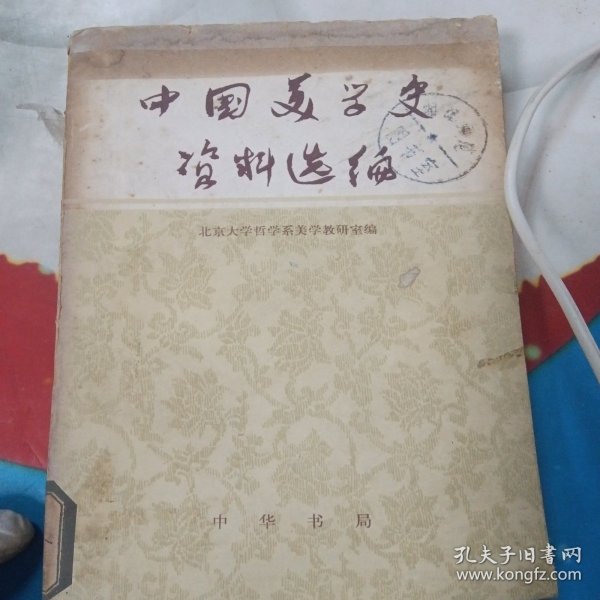 中国美学史
资料选编
北京大学哲学系美学教研室编
中华书局
孔夫子旧书网
www.kongfz.com